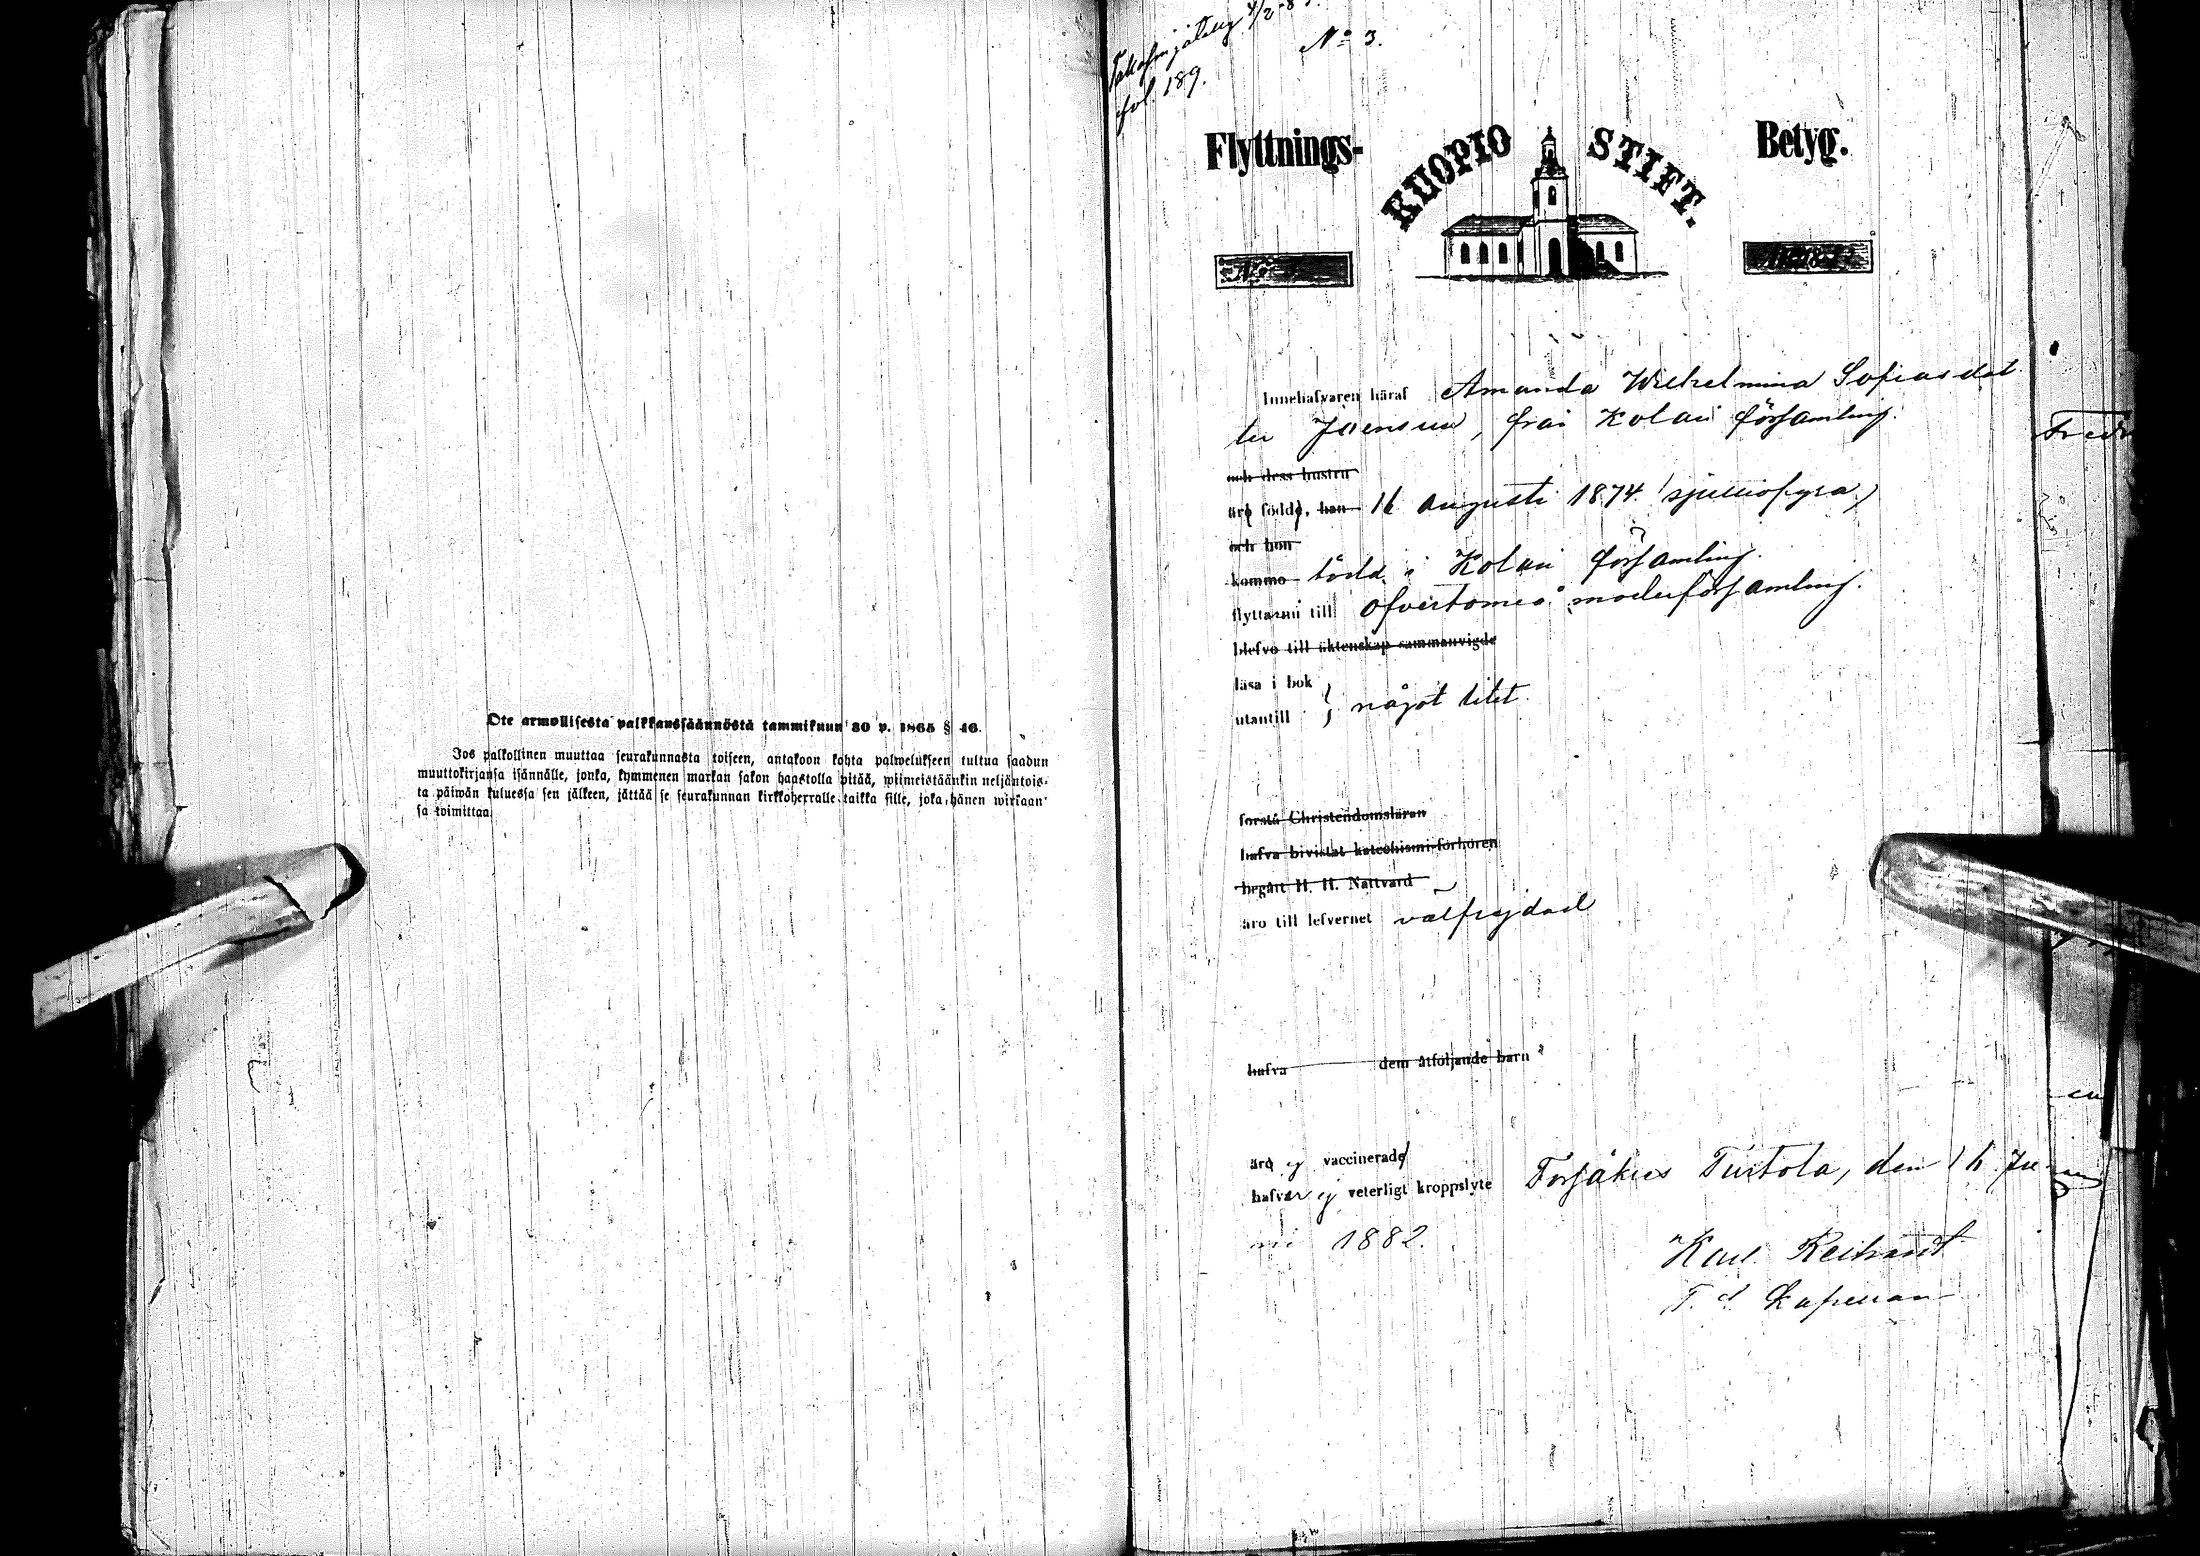 Ote armollisesta palkkaussäännöstä tammikuun 30 p. 1865 § 46.
Jos palkollinen muuttaa seurakunnasta toiseen, antakoon kohta palwelukseen tultua saadun
muuttokirjansa isännälle, jonka, kymmenen markan sakon haastolla pitää, wiimeistäänkin neljäntois-
ta päiwän kuluessa sen jälkeen, jättää se seurakunnan kirkkoherralle taikka sille, joka hänen wirkaan-
sa toimittaa.
fol. 189.
No 3.
Flyttnings- KUOPIO STIFT. Betyg.
Innehafvaren häraf Amanda Wilhelmina Sofiasdot
ter Joensuu, från Kolari församling.
och dess hustru
äro födde, han 16 Augusti 1874 (sjuttiofyra)
och hon
kommo född i Kolari församling.
flytta nu till Öfvertorneå moderförsamling.
blefvo till äktenskap sammanvigde
läsa i bok
utantill } något litet
förstå Christendomsläran
hafva bivistat katechismi-förhören
begått H. H. Nattvard
äro till lefvernet välfrejdad
hafva dem åtföljande barn
äro ej vaccinerade
hafva ej veterligt kroppslyte Turtola, den 16 Ju
ni 1882.
Karl
T. f. Kapellan
Fredr